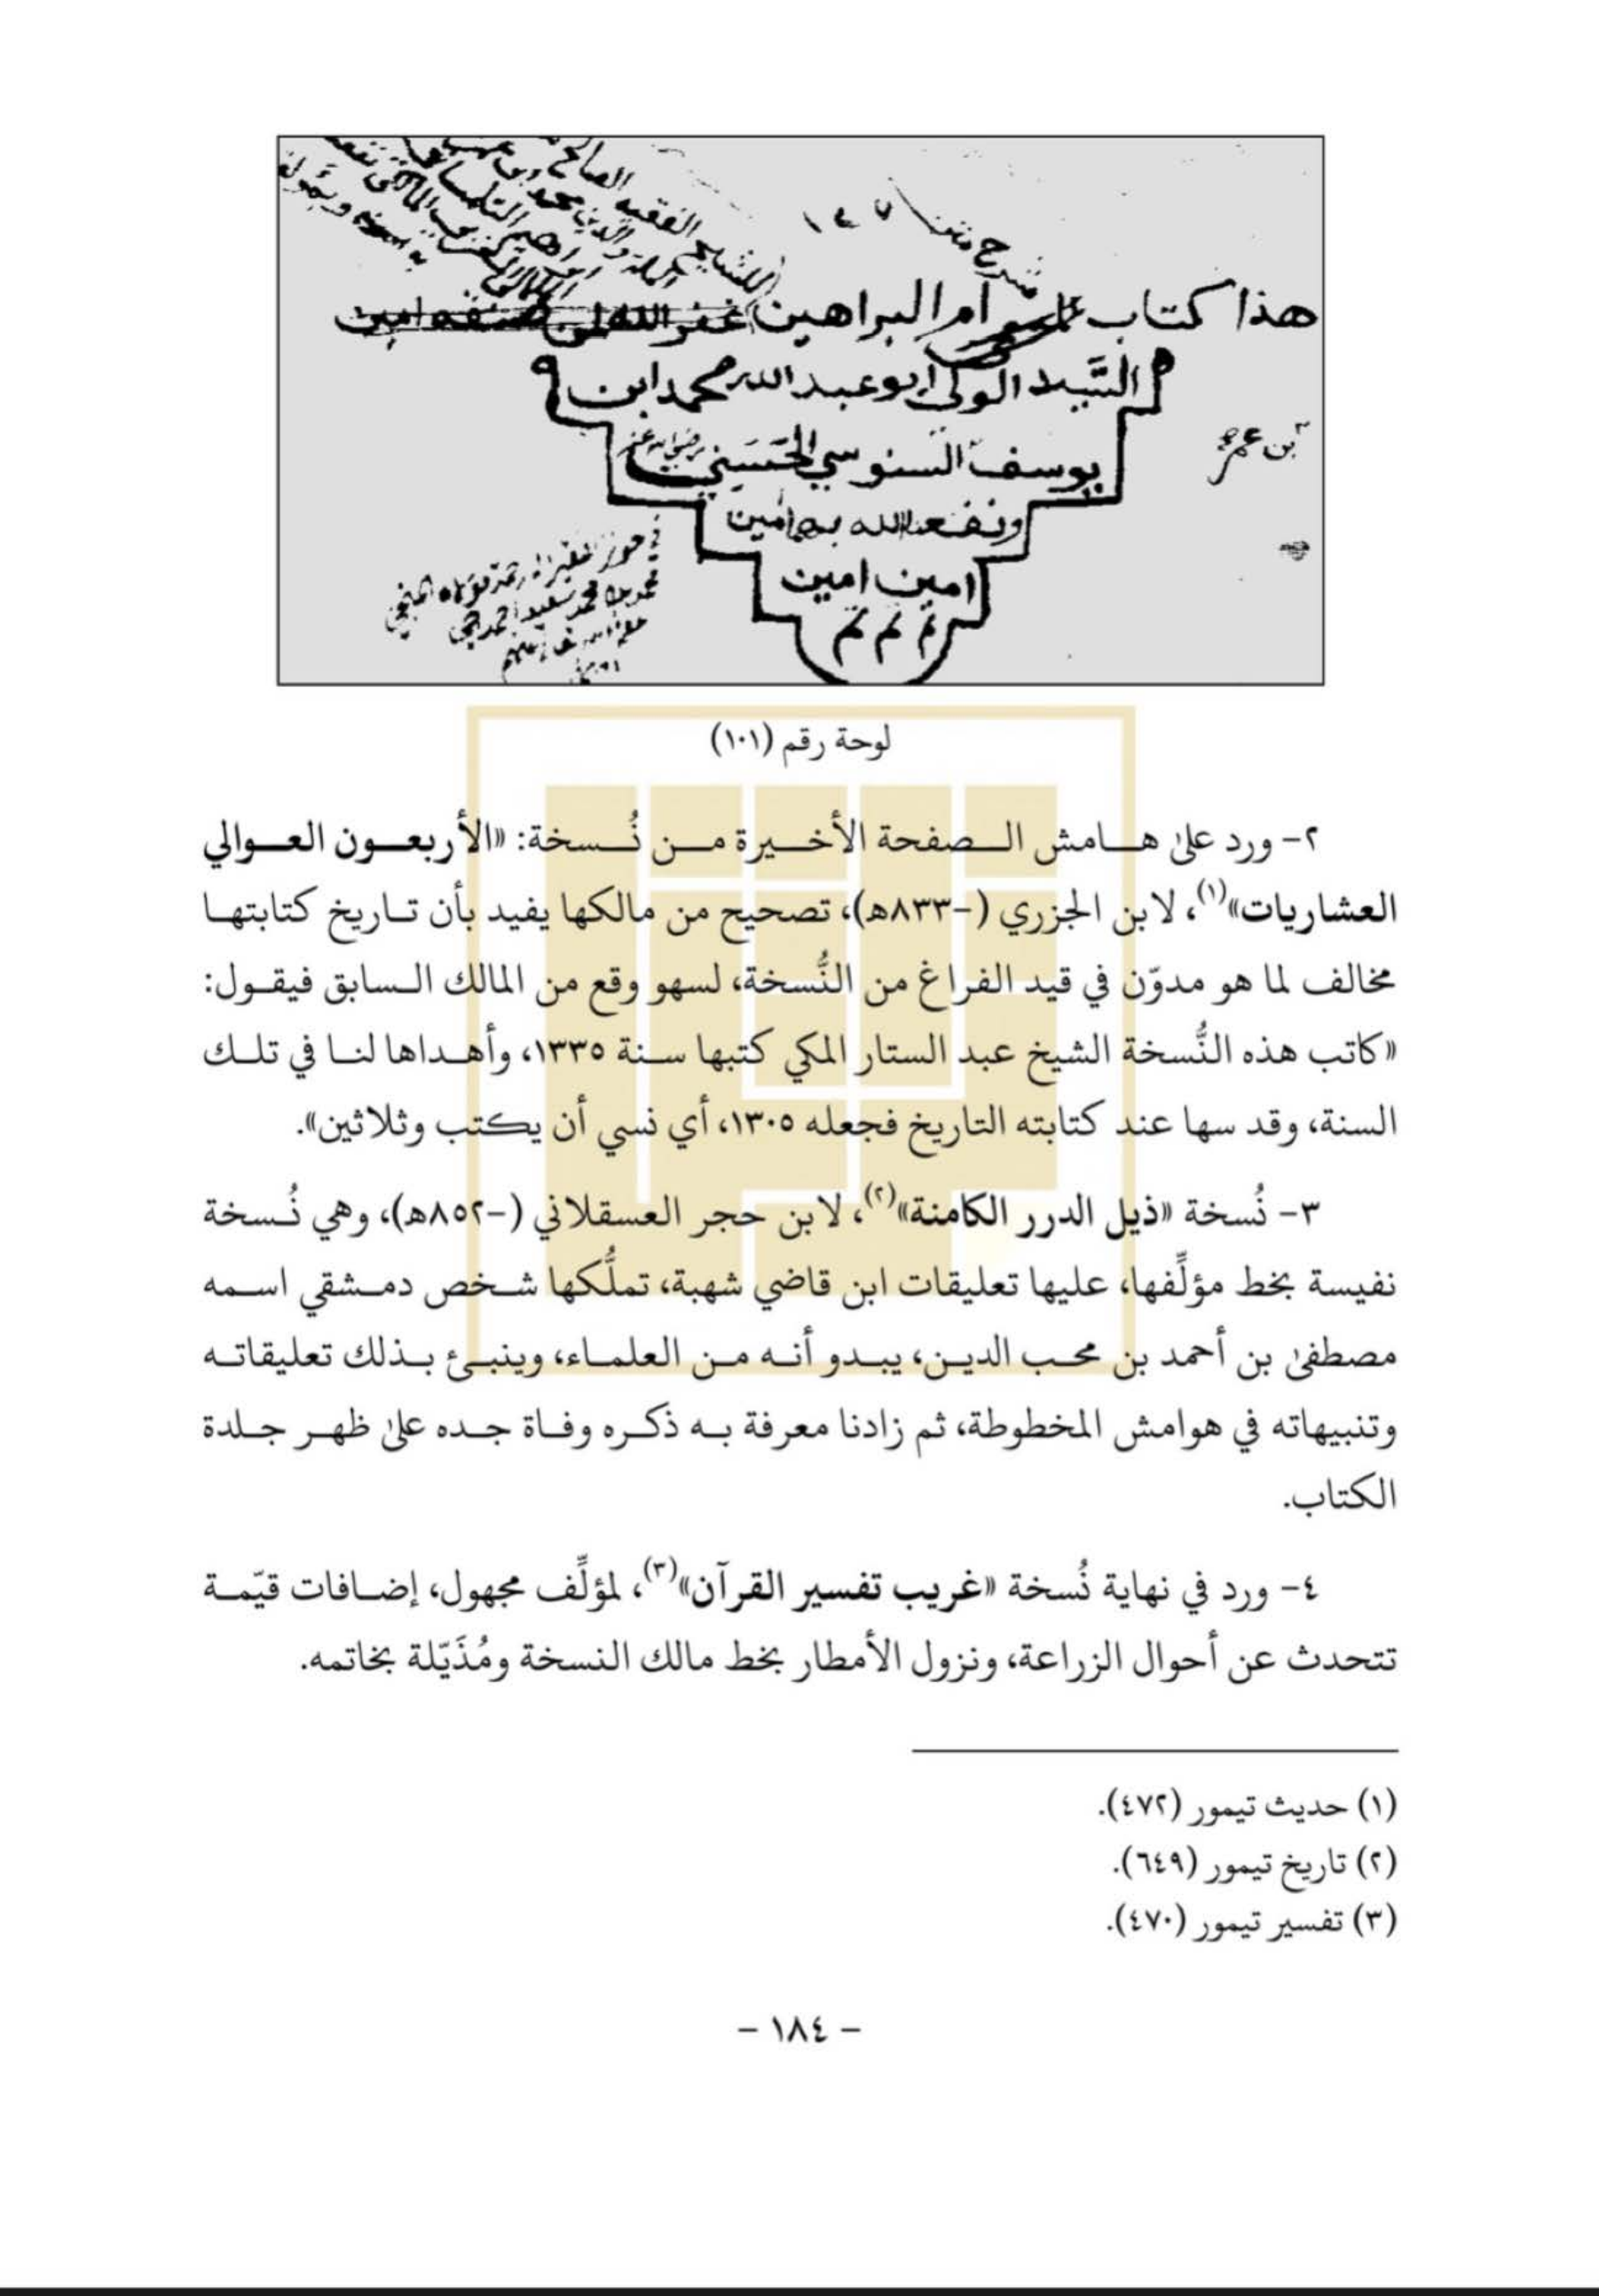 شرح متن
١٤٧
للشيخ الفقيه الصالح
هذا كتاب ام البراهين غفر الله لمن صنفه امين
السَّيد الولي ابو عبد الله محمد ابن
يوسف السنوسي الحَسَني رضي الله عنه
ونفعنا الله به امين
امين امين
تم تم تم
ابن عمر
لوحة رقم (١٠١)
٢- ورد على هامش الصفحة الأخيرة من نُسخة: «الأربعون العوالي
العشاريات»(١)، لابن الجزري (-٨٣٣هـ)، تصحيح من مالكها يفيد بأن تاريخ كتابتها
مخالف لما هو مدوّن في قيد الفراغ من النُّسخة، لسهو وقع من المالك السابق فيقول:
«كاتب هذه النُّسخة الشيخ عبد الستار المكي كتبها سنة ١٣٣٥، وأهداها لنا في تلك
السنة، وقد سها عند كتابته التاريخ فجعله ١٣٠٥، أي نسي أن يكتب وثلاثين».
٣- نُسخة «ذيل الدرر الكامنة»(٢)، لابن حجر العسقلاني (-٨٥٢هـ)، وهي نُسخة
نفيسة بخط مؤلِّفها، عليها تعليقات ابن قاضي شهبة، تملَّكها شخص دمشقي اسمه
مصطفى بن أحمد بن محب الدين، يبدو أنه من العلماء، وينبئ بذلك تعليقاته
وتنبيهاته في هوامش المخطوطة، ثم زادنا معرفة به ذكره وفاة جده على ظهر جلدة
الكتاب.
٤- ورد في نهاية نُسخة «غريب تفسير القرآن»(٣)، لمؤلِّف مجهول، إضافات قيّمة
تتحدث عن أحوال الزراعة، ونزول الأمطار بخط مالك النسخة ومُذَيّلة بخاتمه.
(١) حديث تيمور (٤٧٢).
(٢) تاريخ تيمور (٦٤٩).
(٣) تفسير تيمور (٤٧٠).
- ١٨٤ -